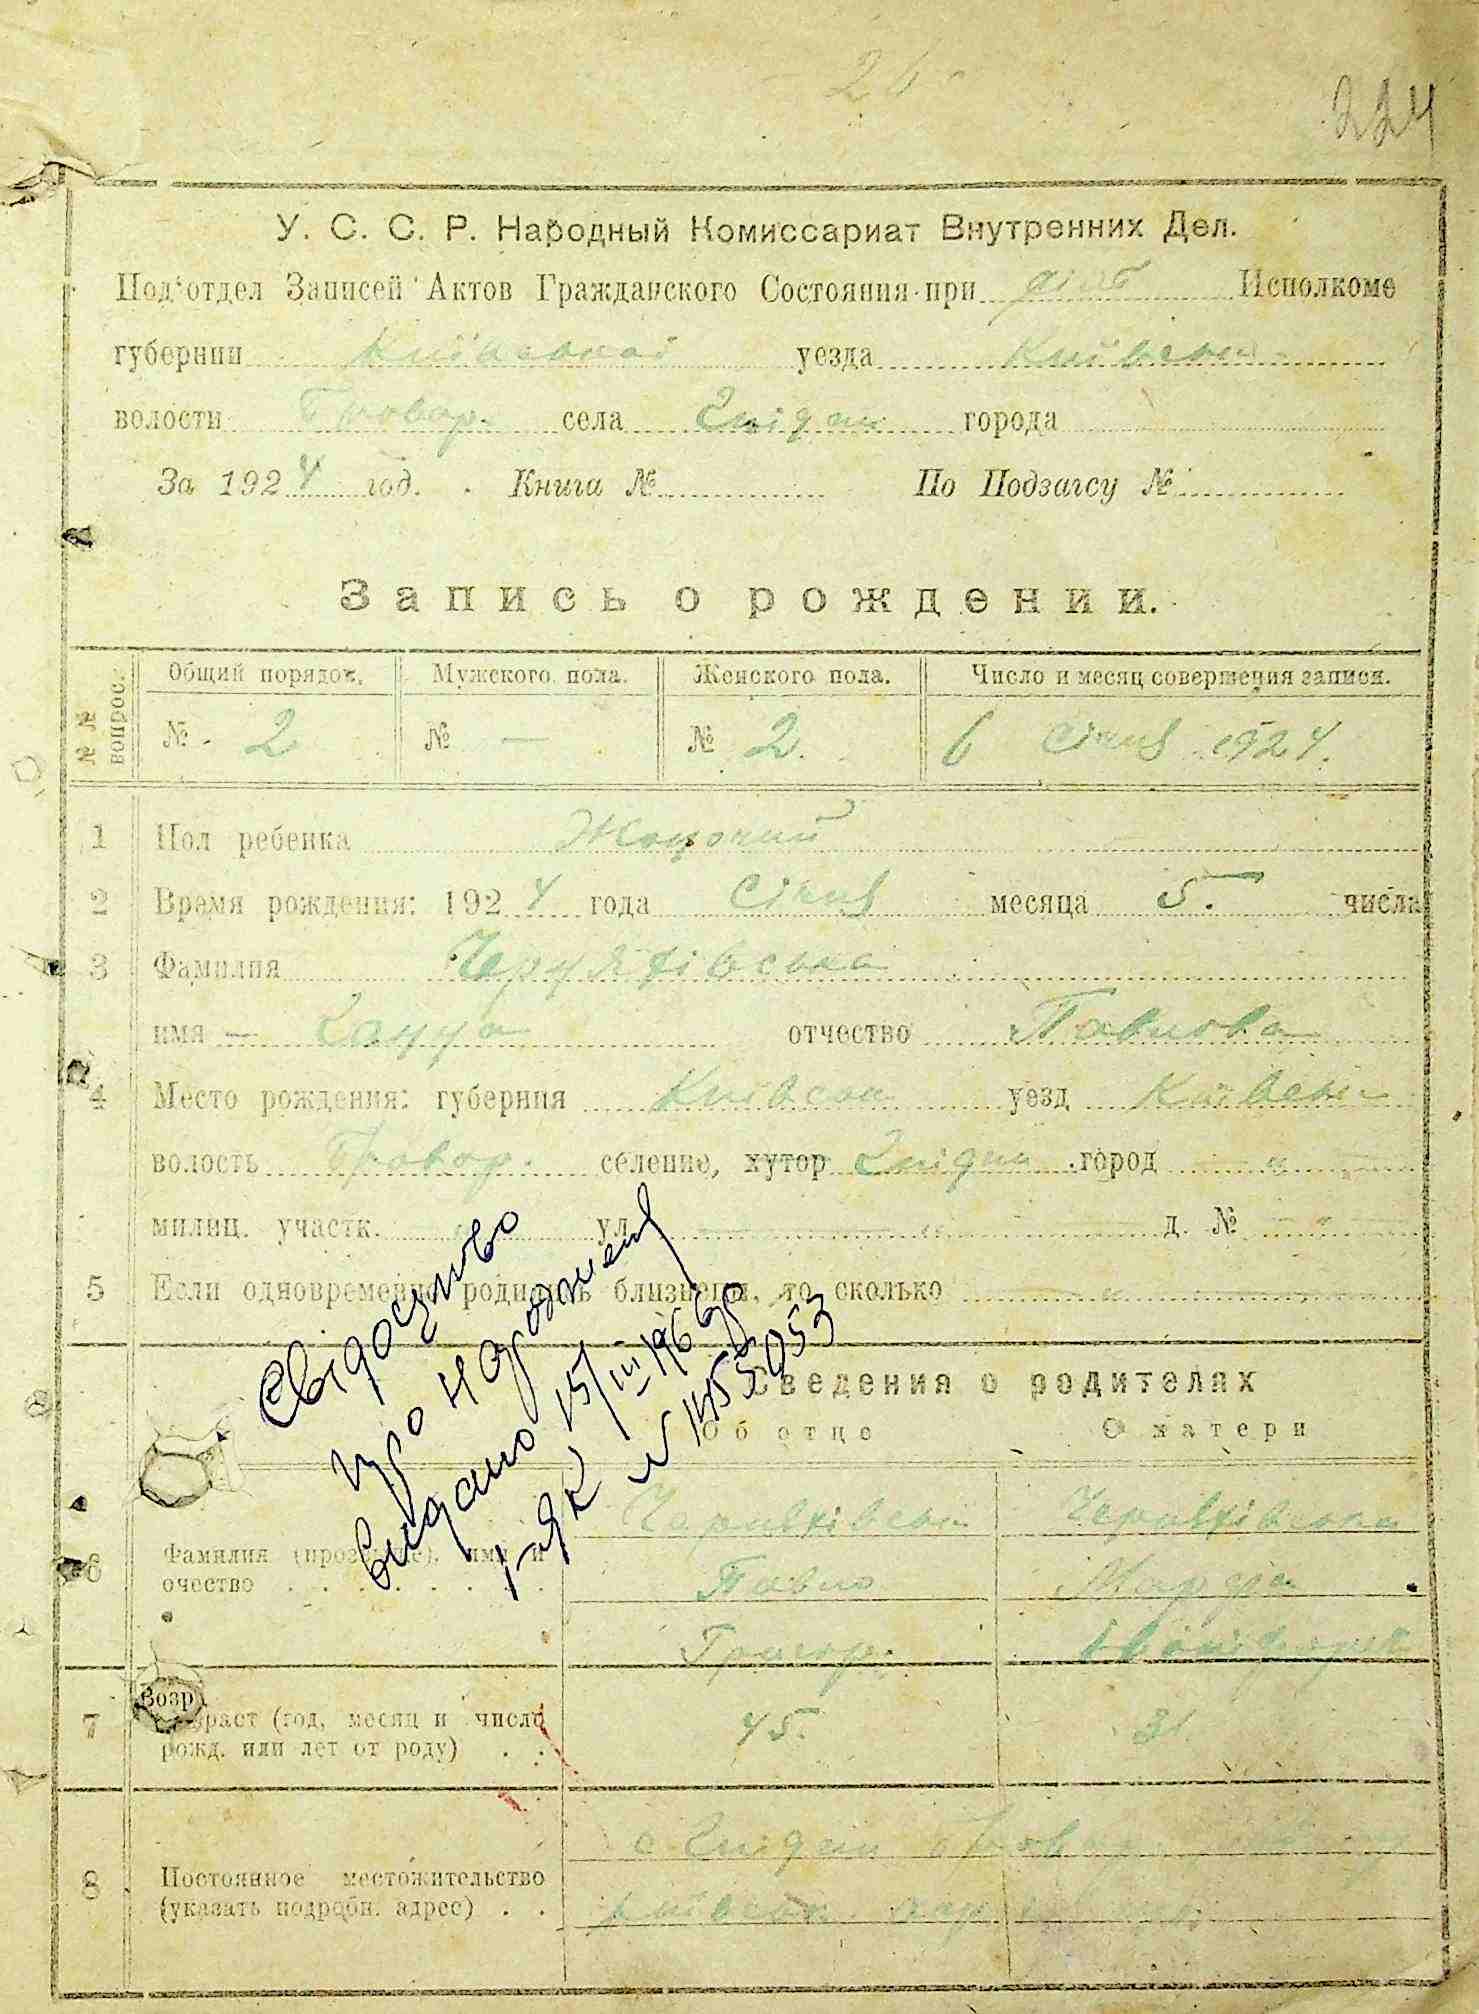 26
224
У. С. С. Р. Народный Комиссариат Внутренних Дел.
Под'отдел Записей Актов Гражданского Состояния при Исполкоме
губернии Київської уезда Київськ.
волости Бровар. села Гнідин города
За 1924 год. Книга № По Подзагсу №
Запись о рождении.
№ № вопрос. Общий порядок. Мужского пола. Женского пола. Число и месяц совершения записи.
№ 2 № — № 2. 6 Січня 1924.
1 Пол ребенка Жіночий
2 Время рождения: 1924 года Січня месяца 5. числа
3 Фамилия Черняхівська
имя — Ганна отчество Павлова
4 Место рождения: губерния Київськ уезд Київськ
волость Бровар. селение, хутор Гнідин город "
милиц. участк. " ул. — " — д. № — " —
5 Если одновременно родились близнецы, то сколько — " —
Свідоцтво
про народження
видано 15/III 1966р
І-ЯК № 1455053
Сведения о родителях
Об отце О матери
6 Фамилия (прозвище), имя и
очество
Черняхівськ Черняхівська
Павло Марфа
Григор.
7 Возраст (год, месяц и число
рожд. или лет от роду) 45. 31
8 Постоянное местожительство
(указать подробн. адрес)
с Гнідин Бровар.
Київськ.